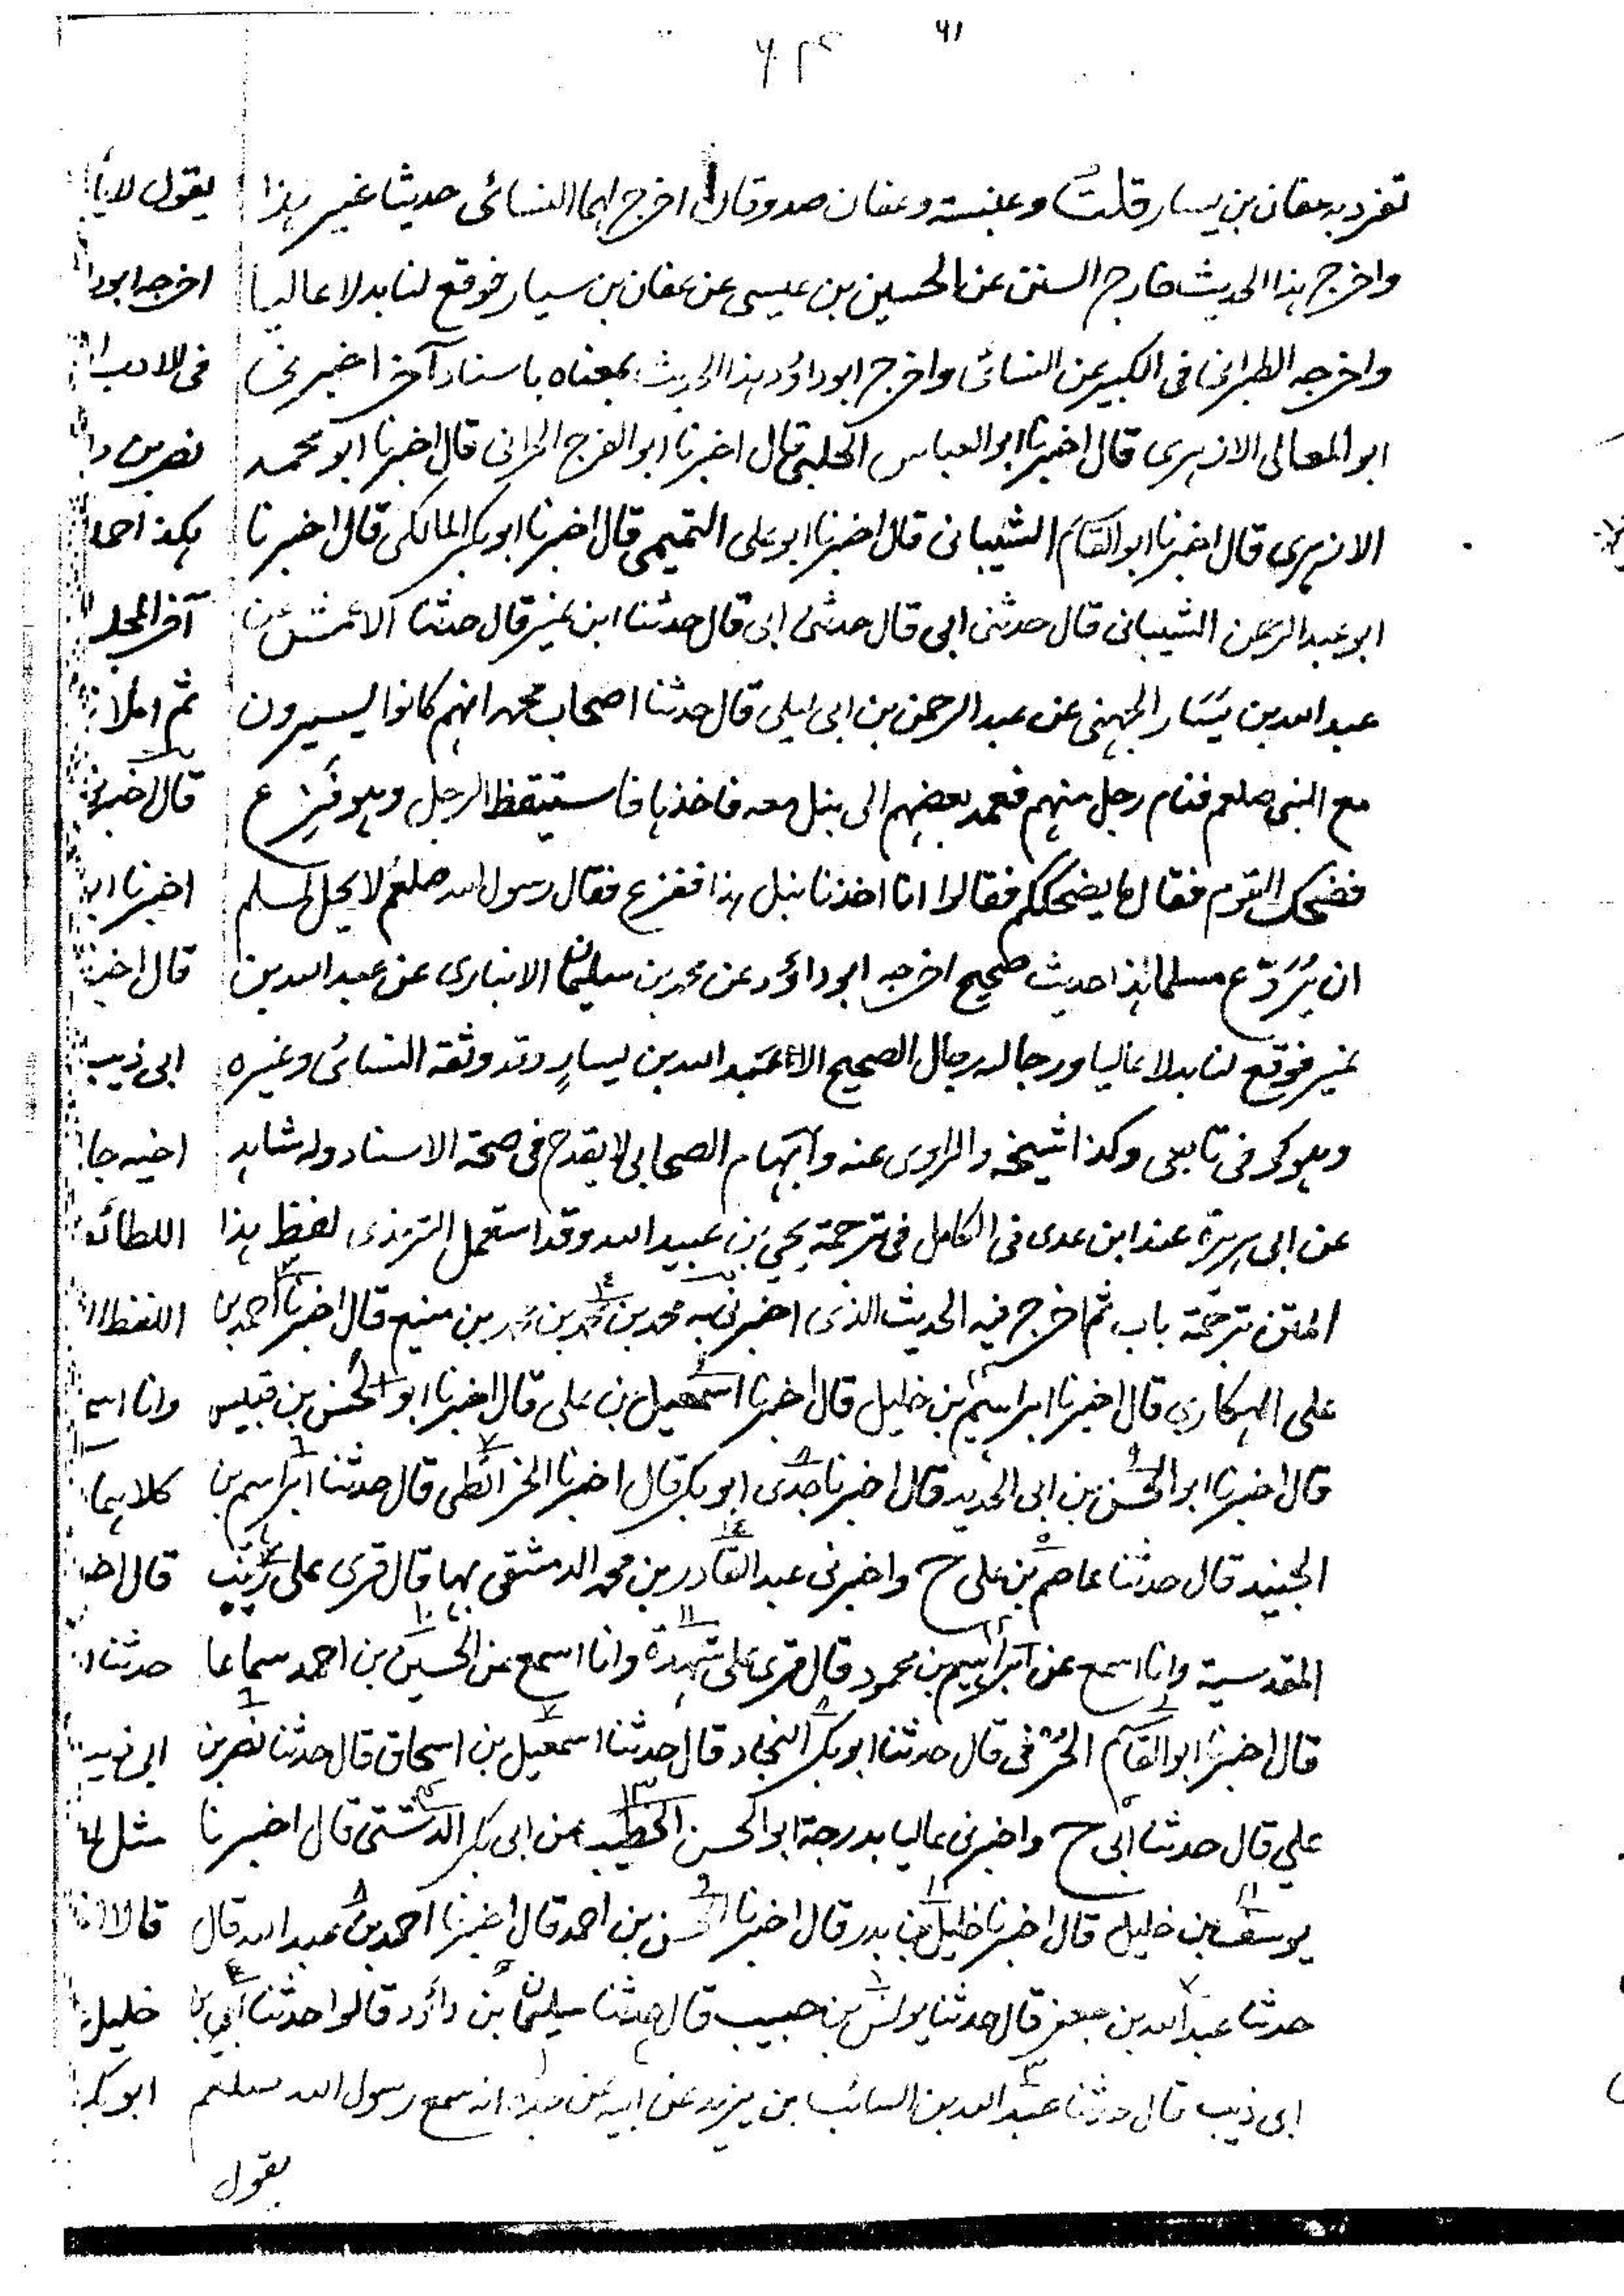 ٦١
تفرد به عفان بن يسار قلت وعنبسة وعفان صدوقان اخرج لهما النسائى حديثا غير هذا
واخرج هذا الحديث خارج السنن عن الحسين بن عيسى عن عفان بن سيار فوقع لنا بدلا عاليا
واخرجه الطبرانى فى الكبير عن النسائى واخرج ابوداؤد هذا الحديث بمعناه باسناد آخر اخبرنى
ابو المعالى الازهرى قال اخبرنا ابو العباس الحلبى قال اخبرنا ابو الفرج الحرانى قال اخبرنا ابو محمد
الازهرى قال اخبرنا ابو القاسم الشيبانى قال اخبرنا ابو على التميمى قال اخبرنا ابو بكر المالكى قال اخبرنا
ابو عبد الرحمن الشيبانى قال حدثنى ابى قال حدثنى ابى قال حدثنا ابن نمير قال حدثنا الاعمش عن
عبد الله بن يَسَار الجهنى عن عبد الرحمن بن ابى ليلى قال حدثنا اصحاب محمد انهم كانوا يسيرون
مع النبى صلعم فنام رجل منهم فعمد بعضهم الى نبل معه فاخذها فاستيقظ الرجل وهو فَزِع
فضحك القوم فقال ما يضحككم فقالوا انا اخذنا نبل هذا ففزع فقال رسول الله صلعم لا يحل لمسلم
ان يُرَوّع مسلما هذا حديث صحيح اخرجه ابوداؤد عن محمد بن سليمان الانبارى عن عبد الله بن
نمير فوقع لنا بدلا عاليا ورجاله رجال الصحيح الا عبد الله بن يسار وقد وثقه النسائى وغيره
وهو كوفى تابعى وكذا شيخه والراوى عنه وابهام الصحابى لا يقدح فى صحة الاسناد وله شاهد
عن ابى هريرة عند ابن عدى فى الكامل فى ترجمة يحيى بن عبيد الله وقد استعمل الترمذى لفظ هذا
المتن ترجمة باب ثم اخرج فيه الحديث الذى اخبرنى به محمد بن محمد بن محمد بن منيع قال اخبرنا احمد بن
على الهكارى قال اخبرنا ابراهيم بن خليل قال اخبرنا اسمعيل بن على قال اخبرنا ابو الحسن بن قبيس
قال اخبرنا ابو الحسن بن ابى الحديد قال اخبرنا جدى ابو بكر قال اخبرنا الخرائطى قال حدثنا ابراهيم بن
الجنيد قال حدثنا عاصم بن على ح واخبرنى عبد القادر بن محمد الدمشقى بها قال قرى على زينب
المقدسية وانا اسمع عن ابراهيم بن محمود قال قرى على شهدة وانا اسمع عن الحسين بن احمد سماعا
قال اخبرنا ابو القاسم الحُرْفى قال حدثنا ابو بكر النجاد قال حدثنا اسمعيل بن اسحاق قال حدثنا نصر بن
على قال حدثنا ابى ح واخبرنى عاليا بدرجة ابو الحسن الخطيب عن ابى بكر الدشتى قال اخبرنا
يوسف بن خليل قال اخبرنا خليل بن بدر قال اخبرنا الحسن بن احمد قال اخبرنا احمد بن عبد الله قال
حدثنا عبد الله بن جعفر قال حدثنا يونس بن حبيب قال حدثنا سليمان بن داؤد قالوا حدثنا ابن
ابى ذيب قال حدثنا عبد الله بن السائب بن يزيد عن ابيه عن جده انه سمع رسول الله صلعم
يقول
يقول لا
اخرجه
فى الادب
نصر بن
هكذا
آخر المجلد
ثم املا
قال
اخبرنا
قال
ابى ذيب
اخيه
اللفظ
وانا
كلاهما
قال
حدثنا
مثل
خليل
ابو بكر